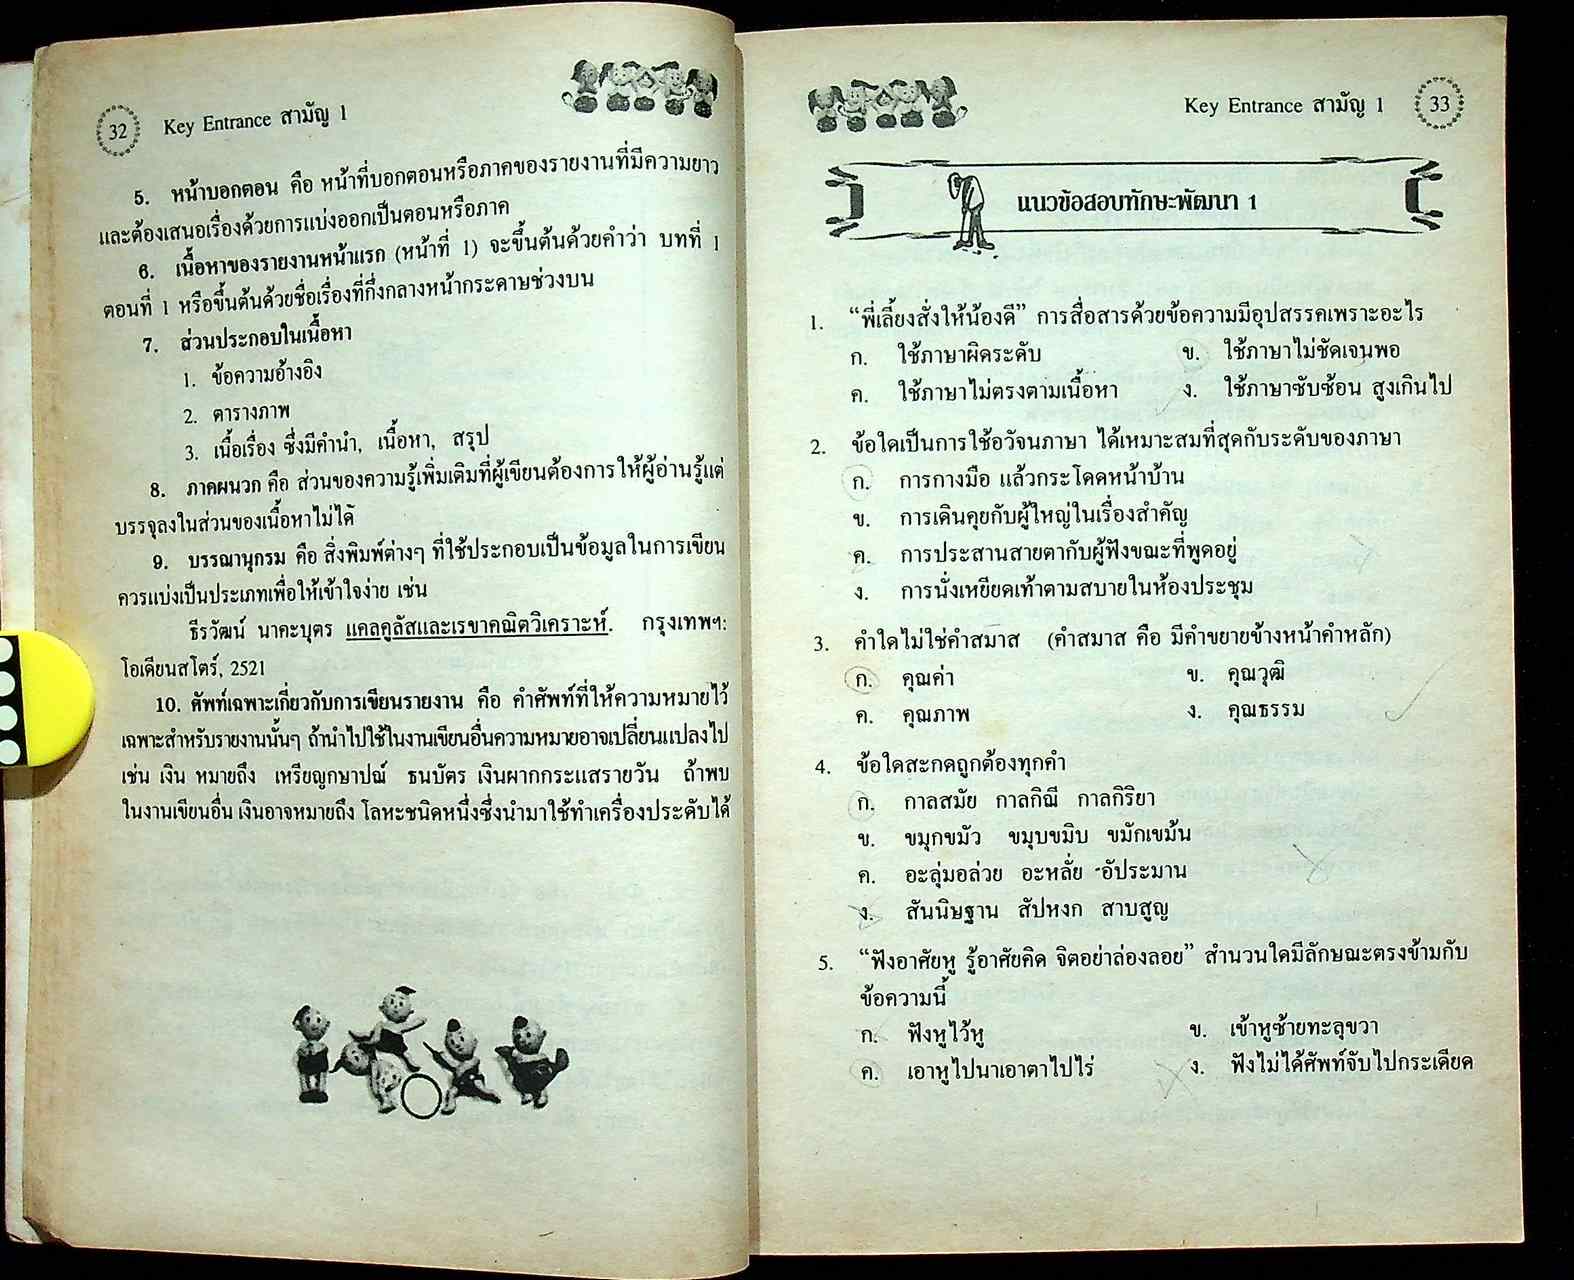 32 Key Entrance สามัญ 1
5. หน้าบอกตอน คือ หน้าที่บอกตอนหรือภาคของรายงานที่มีความยาว
และต้องเสนอเรื่องด้วยการแบ่งออกเป็นตอนหรือภาค
6. เนื้อหาของรายงานหน้าแรก (หน้าที่ 1) จะขึ้นต้นด้วยคำว่า บทที่ 1
ตอนที่ 1 หรือขึ้นต้นด้วยชื่อเรื่องที่กึ่งกลางหน้ากระดาษช่วงบน
7. ส่วนประกอบในเนื้อหา
1. ข้อความอ้างอิง
2. ตารางภาพ
3. เนื้อเรื่อง ซึ่งมีคำนำ, เนื้อหา, สรุป
8. ภาคผนวก คือ ส่วนของความรู้เพิ่มเติมที่ผู้เขียนต้องการให้ผู้อ่านรู้แต่
บรรจุลงในส่วนของเนื้อหาไม่ได้
9. บรรณานุกรม คือ สิ่งพิมพ์ต่างๆ ที่ใช้ประกอบเป็นข้อมูลในการเขียน
ควรแบ่งเป็นประเภทเพื่อให้เข้าใจง่าย เช่น
ธีรวัฒน์ นาคะบุตร แคลคูลัสและเรขาคณิตวิเคราะห์. กรุงเทพฯ:
โอเดียนสโตร์, 2521
10. ศัพท์เฉพาะเกี่ยวกับการเขียนรายงาน คือ คำศัพท์ที่ให้ความหมายไว้
เฉพาะสำหรับรายงานนั้นๆ ถ้านำไปใช้ในงานเขียนอื่นความหมายอาจเปลี่ยนแปลงไป
เช่น เงิน หมายถึง เหรียญกษาปณ์ ธนบัตร เงินฝากกระแสรายวัน ถ้าพบ
ในงานเขียนอื่น เงินอาจหมายถึง โลหะชนิดหนึ่งซึ่งนำมาใช้ทำเครื่องประดับได้
Key Entrance สามัญ 1 33
แนวข้อสอบทักษะพัฒนา 1
1. “พี่เลี้ยงสั่งให้น้องดี” การสื่อสารด้วยข้อความมีอุปสรรคเพราะอะไร
ก. ใช้ภาษาผิดระดับ ข. ใช้ภาษาไม่ชัดเจนพอ
ค. ใช้ภาษาไม่ตรงตามเนื้อหา ง. ใช้ภาษาซับซ้อน สูงเกินไป
2. ข้อใดเป็นการใช้อวัจนภาษา ได้เหมาะสมที่สุดกับระดับของภาษา
ก. การกางมือ แล้วกระโดดหน้าบ้าน
ข. การเดินคุยกับผู้ใหญ่ในเรื่องสำคัญ
ค. การประสานสายตากับผู้ฟังขณะที่พูดอยู่
ง. การนั่งเหยียดเท้าตามสบายในห้องประชุม
3. คำใดไม่ใช่คำสมาส (คำสมาส คือ มีคำขยายข้างหน้าคำหลัก)
ก. คุณค่า ข. คุณวุฒิ
ค. คุณภาพ ง. คุณธรรม
4. ข้อใดสะกดถูกต้องทุกคำ
ก. กาลสมัย กาลกิณี กาลกิริยา
ข. ขมุกขมัว ขมุบขมิบ ขมักเขม้น
ค. อะลุ่มอล่วย อะหลั่ย อัประมาน
ง. สันนิษฐาน สัปหงก สาบสูญ
5. “ฟังอาศัยหู รู้อาศัยคิด จิตอย่าล่องลอย” สำนวนใดมีลักษณะตรงข้ามกับ
ข้อความนี้
ก. ฟังหูไว้หู ข. เข้าหูซ้ายทะลุขวา
ค. เอาหูไปนาเอาตาไปไร่ ง. ฟังไม่ได้ศัพท์จับไปกระเดียด